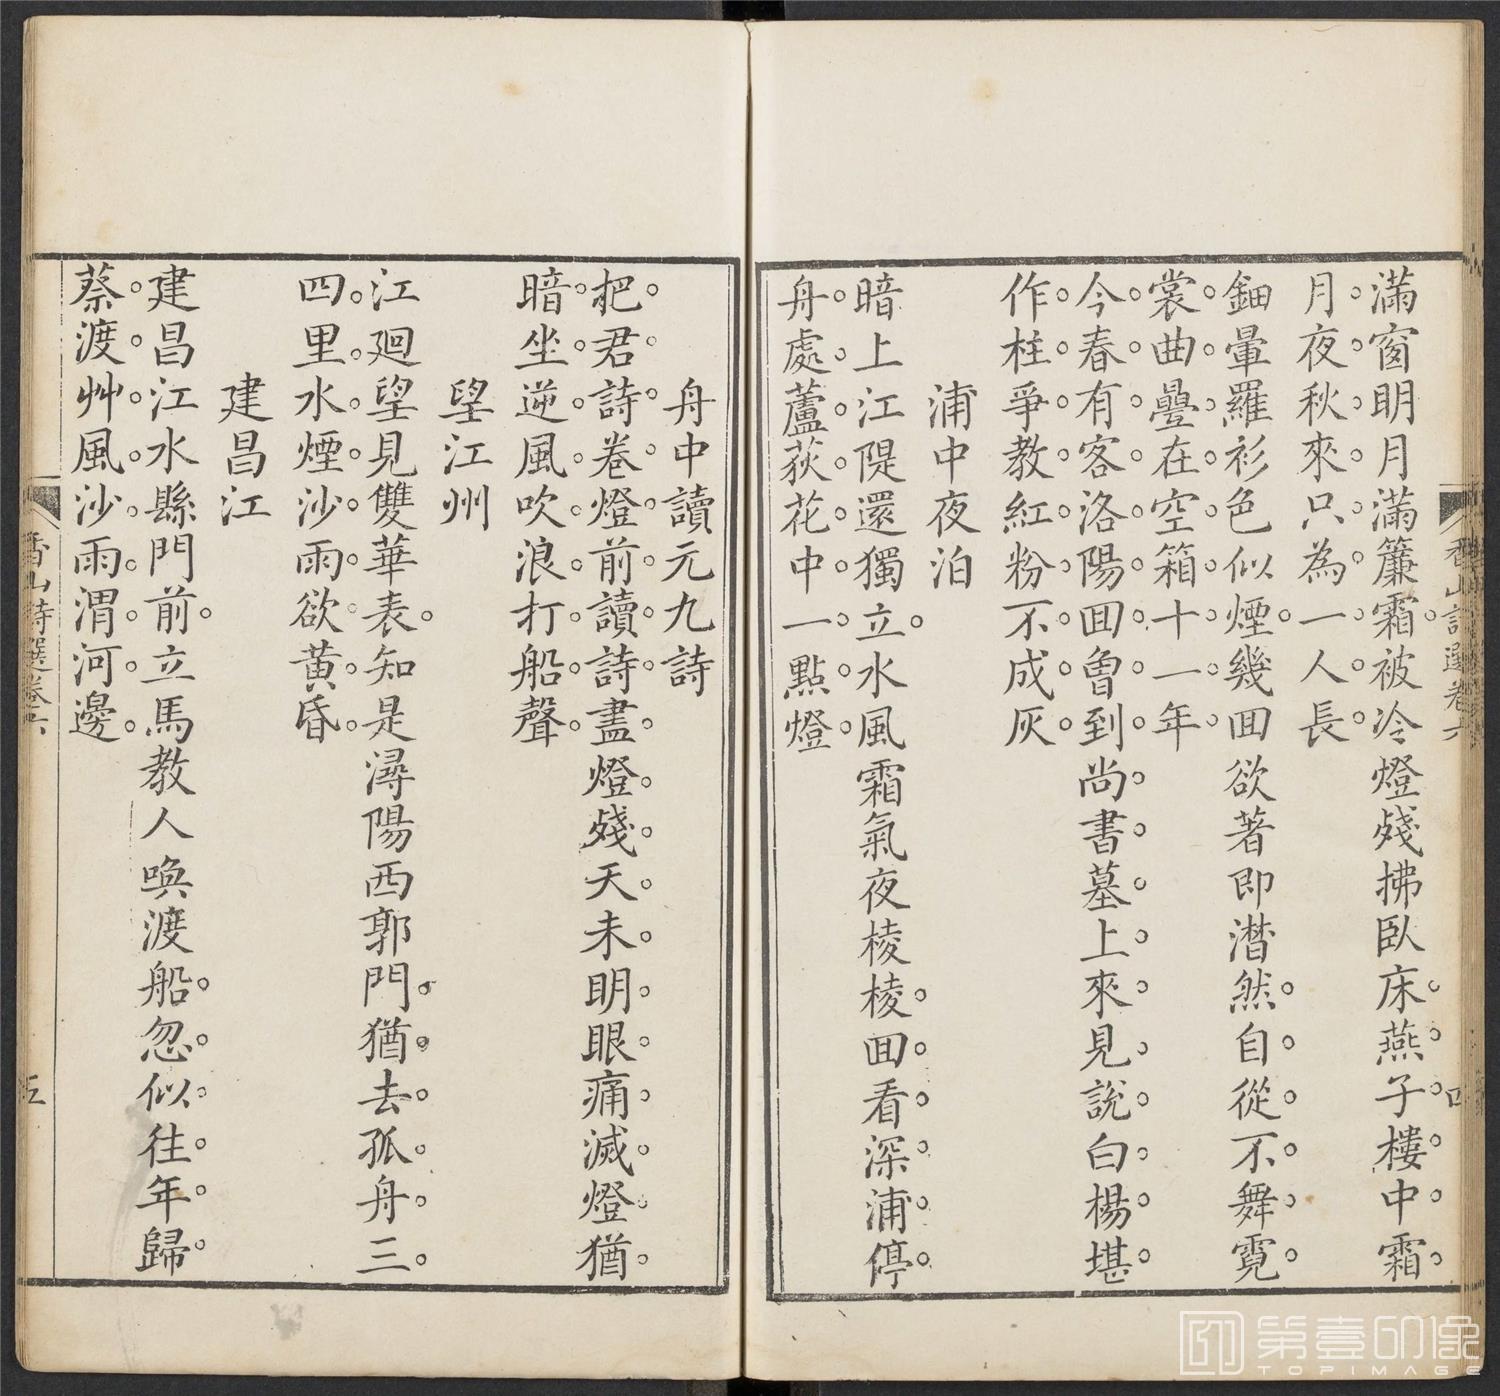 滿窗明月滿簾霜被冷燈殘拂臥床燕子樓中霜
月夜秋來只為一人長
鈿暈羅衫色似煙幾回欲著即潸然自從不舞霓
裳曲疊在空箱十一年
今春有客洛陽回曾到尚書墓上來見說白楊堪
作柱爭教紅粉不成灰
浦中夜泊
暗上江隄還獨立水風霜氣夜棱棱回看深浦停
舟處蘆荻花中一點燈
香山詩選卷六
四
舟中讀元九詩
把君詩卷燈前讀詩盡燈殘天未明眼痛滅燈猶
暗坐逆風吹浪打船聲
望江州
江迴望見雙華表知是潯陽西郭門猶去孤舟三
四里水煙沙雨欲黃昏
建昌江
建昌江水縣門前立馬教人喚渡船忽似往年歸
蔡渡艸風沙雨渭河邊
香山詩選卷六
五
第壹印像
TOPIMAGE